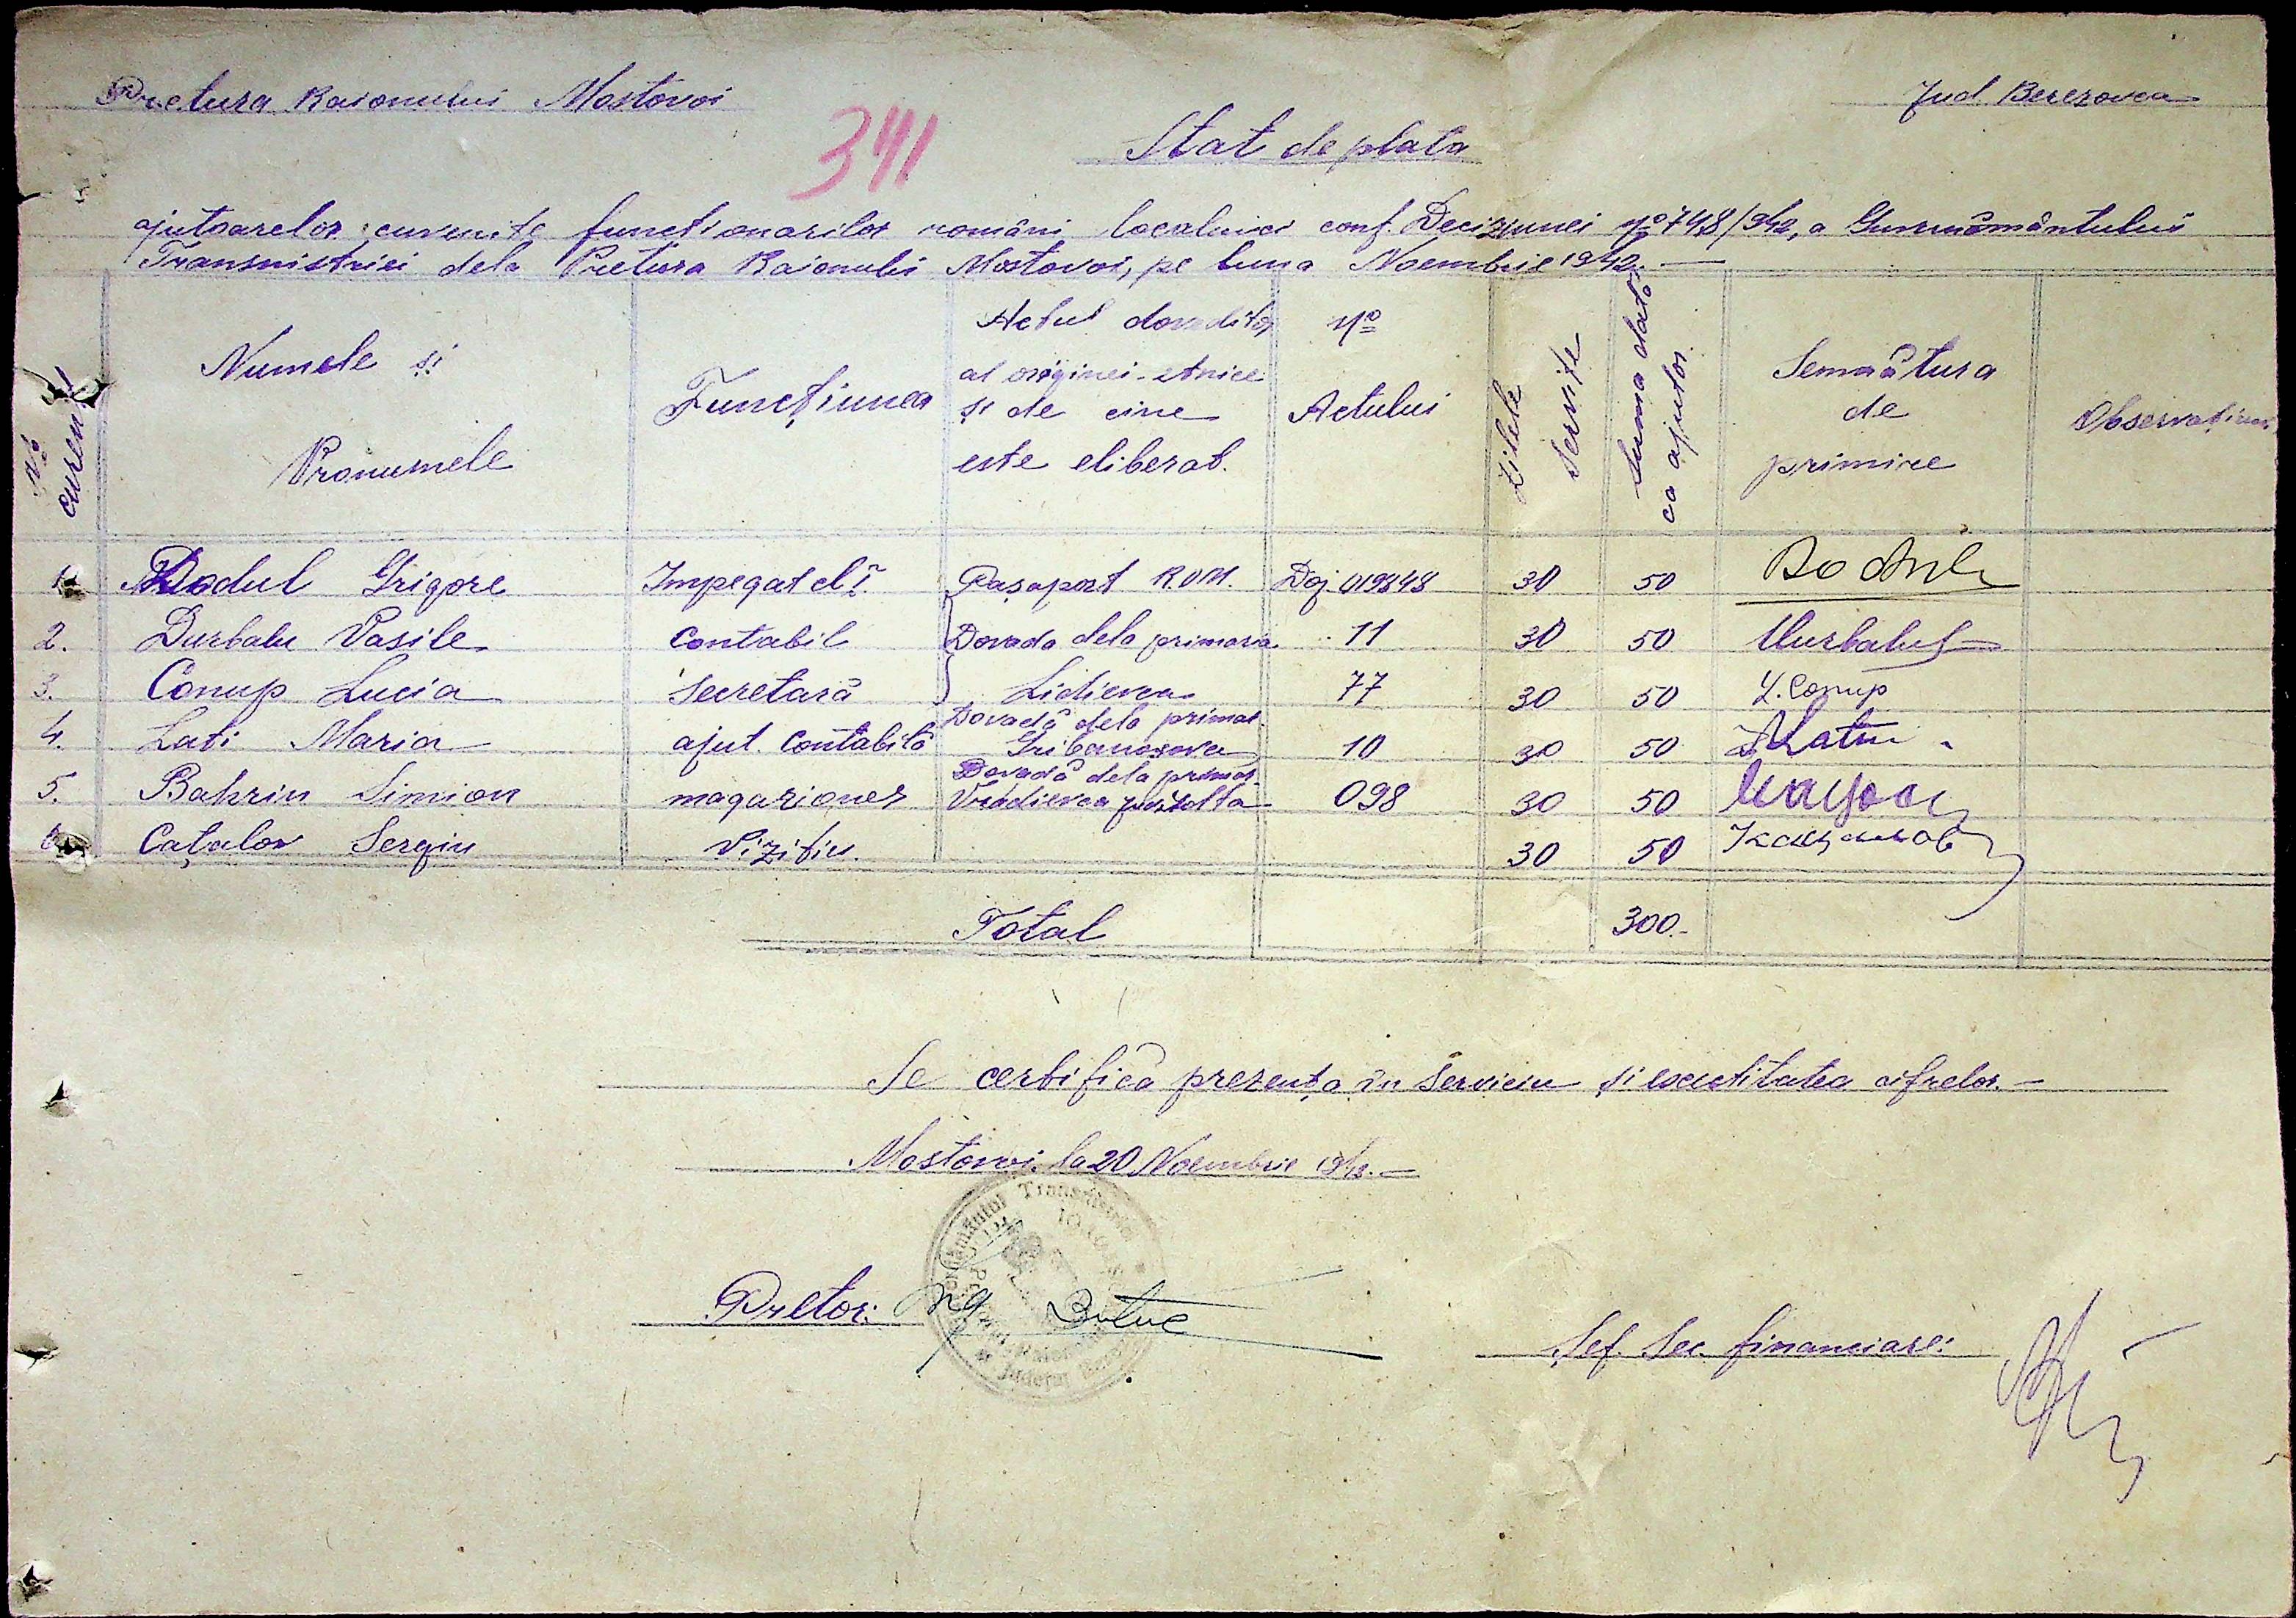 Pretura Raionului Mostovoi
Jud. Berezovca
341
Stat de plata
ajutoarelor cuvenite functionarilor români localnici conf. Deciziunei No 748/942, a Guvernământului
Transnistriei dela Pretura Raionului Mostovoi, pe luna Noembrie 1942. —
No curent
Numele și Pronumele
Funcțiunea
Actul doveditor al originei etnice și de cine este eliberat.
No Actului
Zilele servite
Suma dată ca ajutor.
Semnătura de primire
Observațiuni
1. Dodul Grigore Impegat cl I. Pașaport ROM. Doj. 019348 30 50 Dodul
2. Durbalu Vasile Contabil Dovada dela primaria 11 30 50 Durbaluf
3. Conup Lucia Secretară Lidievca 77 30 50 L. Conup
4. Lati Maria ajut. Contabilă Dovadă dela primar. 10 30 50
5. Bahrin Simion magazioner Dovadă dela primar. Vradievca 098 30 50
6. Cațalov Sergiu Vizitiu. 30 50 Кацалов
Total 300.-
Se certifică prezența în serviciu și exactitatea cifrelor. —
Mostovoi la 20 Noembrie 1942. —
Guvernământul Transnistriei
Județul
Pretor: Ing
Șef. Sec. financiare: